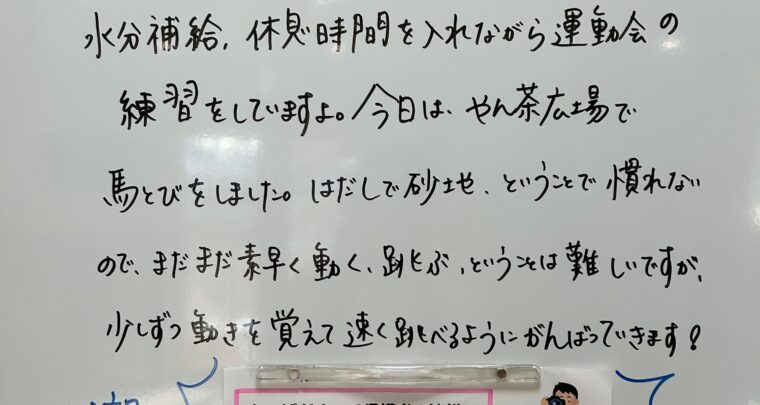 水分補給、休息時間を入れながら運動会の
練習をしていますよ。今日は、やん茶広場で
馬とびをしました。はだしで砂地、ということで慣れない
ので、まだまだ素早く動く、跳ぶ、ということは難しいですが、
少しずつ動きを覚えて速く跳べるようにがんばっていきます!